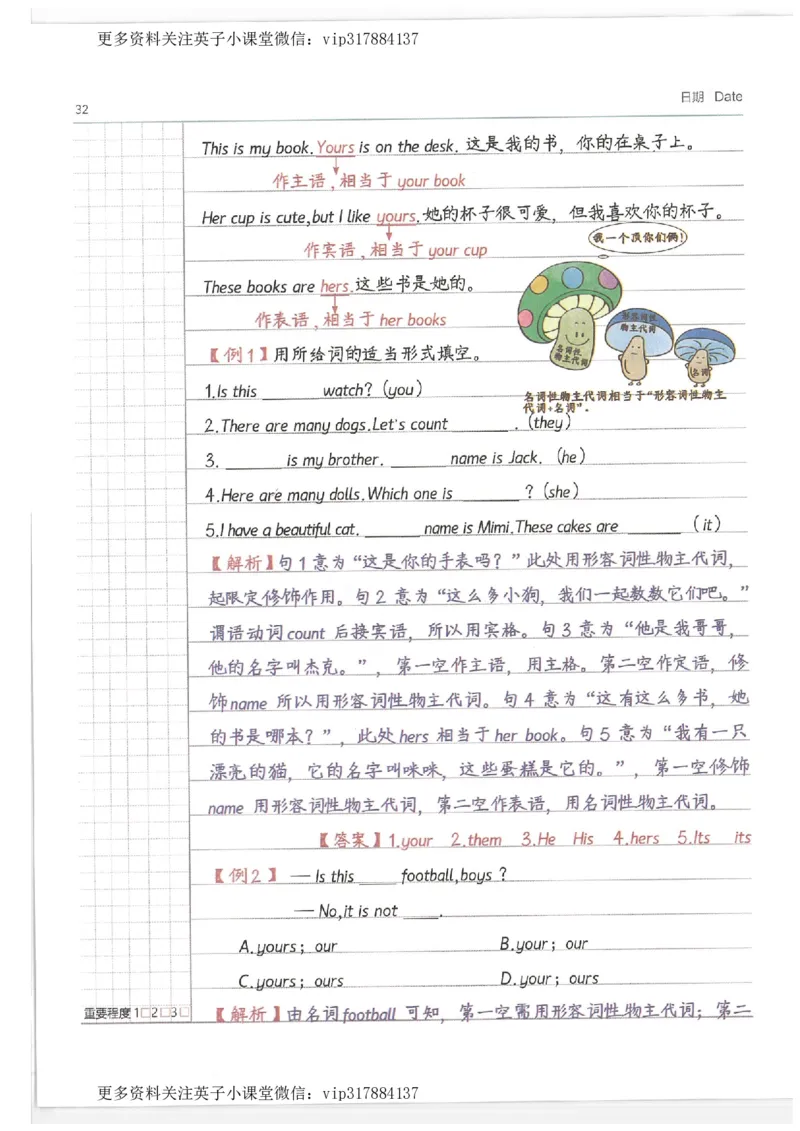 更多资料关注英子小课堂微信：vip317884137
32
日期 Date
This is my book. Yours is on the desk. 这是我的书，你的在桌子上。
作主语，相当于 your book
Her cup is cute,but I like yours.她的杯子很可爱，但我喜欢你的杯子。
我一个顶你们俩!
作宾语，相当于 your cup
These books are hers.这些书是她的。
形容词性
物主代词
作表语，相当于 her books
名词性
物主代词
名词
【例1】用所给词的适当形式填空。
1.Is this ______ watch?（you）
名词性物主代词相当于“形容词性物主
代词+名词”.
2.There are many dogs.Let's count ______ .（they）
3. ______ is my brother. ______ name is Jack.（he）
4.Here are many dolls.Which one is ______ ?（she）
5.I have a beautiful cat. ______ name is Mimi.These cakes are ______ （it）
【解析】句 1 意为“这是你的手表吗？”此处用形容词性物主代词，
起限定修饰作用。句 2 意为“这么多小狗，我们一起数数它们吧。”
谓语动词 count 后接宾语，所以用宾格。句 3 意为“他是我哥哥，
他的名字叫杰克。”，第一空作主语，用主格。第二空作定语，修
饰 name 所以用形容词性物主代词。句 4 意为“这有这么多书，她
的书是哪本？”，此处 hers 相当于 her book。句 5 意为“我有一只
漂亮的猫，它的名字叫咪咪，这些蛋糕是它的。”，第一空修饰
name 用形容词性物主代词，第二空作表语，用名词性物主代词。
【答案】1.your 2.them 3.He His 4.hers 5.Its its
【例2】 —Is this ____ football,boys ?
—No,it is not ____.
A.yours；our B.your；our
C.yours；ours D.your；ours
重要程度 1□2□3□
【解析】由名词 football 可知，第一空需用形容词性物主代词；第二
更多资料关注英子小课堂微信：vip317884137